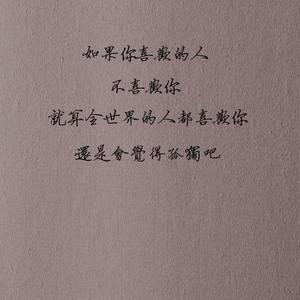 如果你喜歡的人
不喜歡你
就算全世界的人都喜歡你
還是會覺得孤獨吧